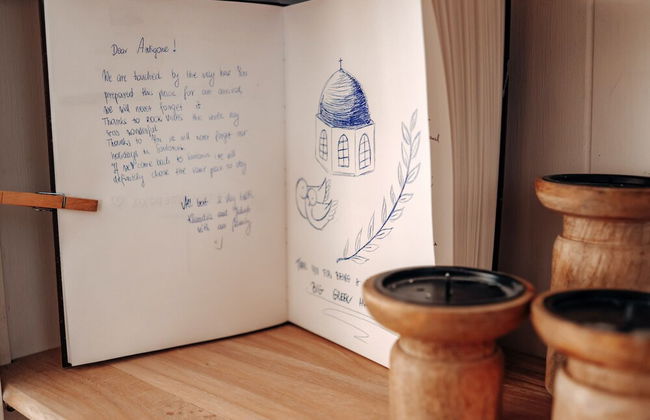 Dear Antigone!
We are touched by the way how You
prepared this place for our arrival
We will never forget it
Thanks to rock villa the whole stay
was wonderful
Thanks to You we will never forget our
holidays in Santorini
If we come back to Santorini we will
definitely chose the same place to stay
All best & stay health
and
with our family
:)
THANK YOU FOR BEING A
BIG GREEK